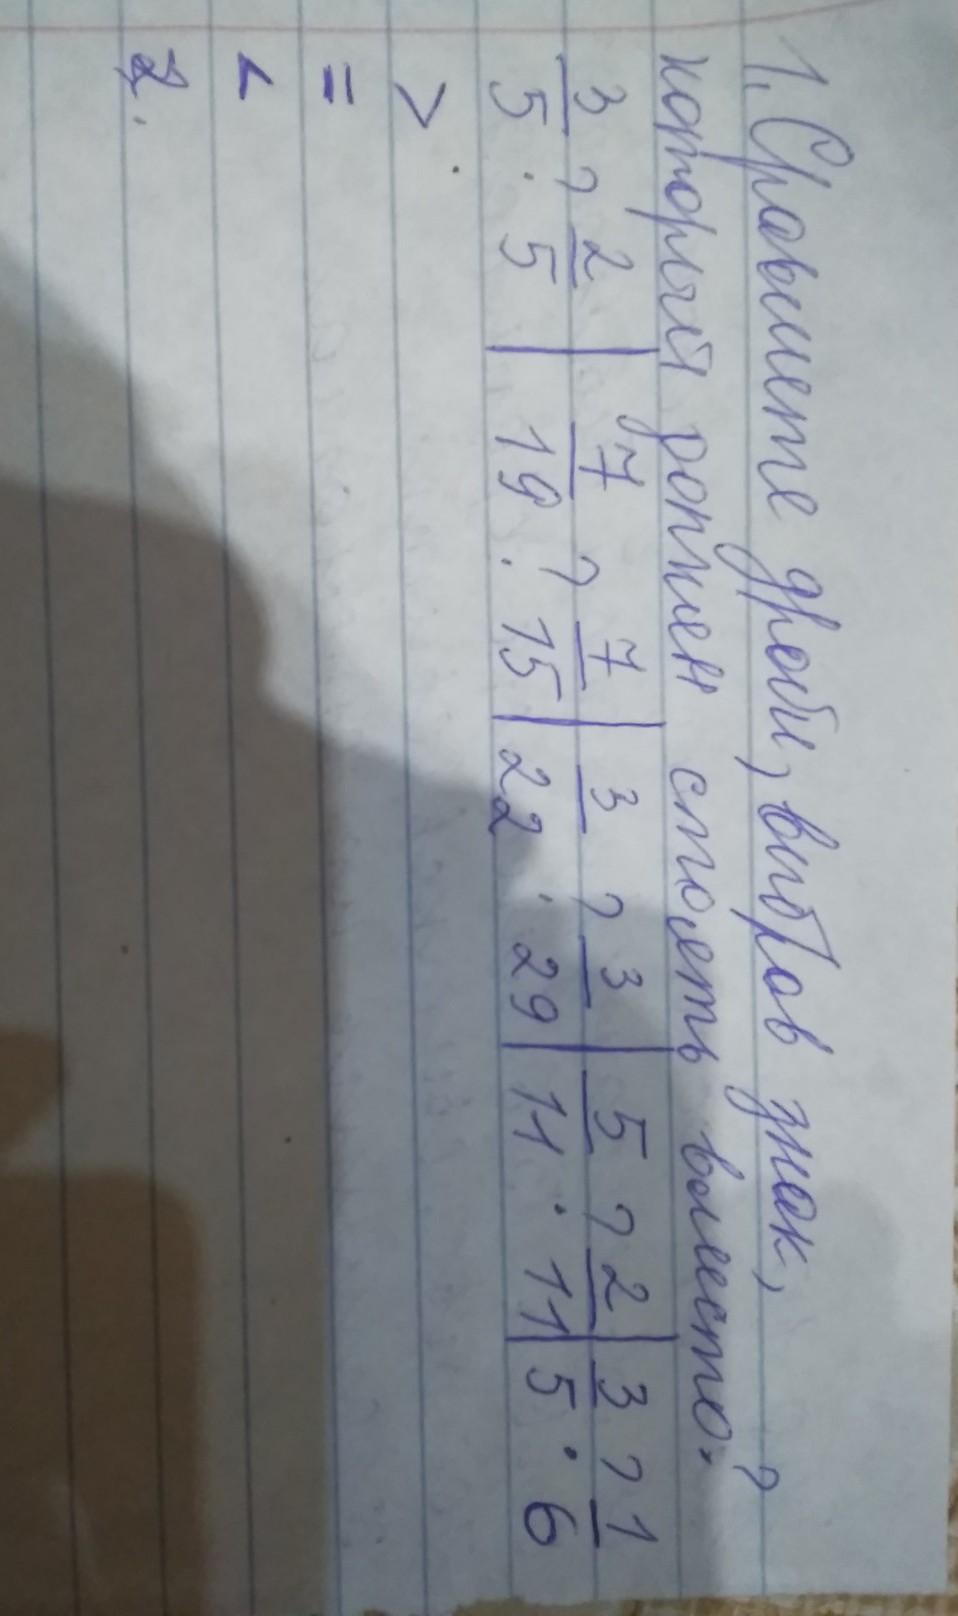 1. Сравните дроби, выбрав знак,
который должен стоять вместо ?
3/5 ? 2/5 | 7/19 ? 7/15 | 3/22 ? 3/29 | 5/11 ? 2/11 | 3/5 ? 1/6
>
=
<
2.